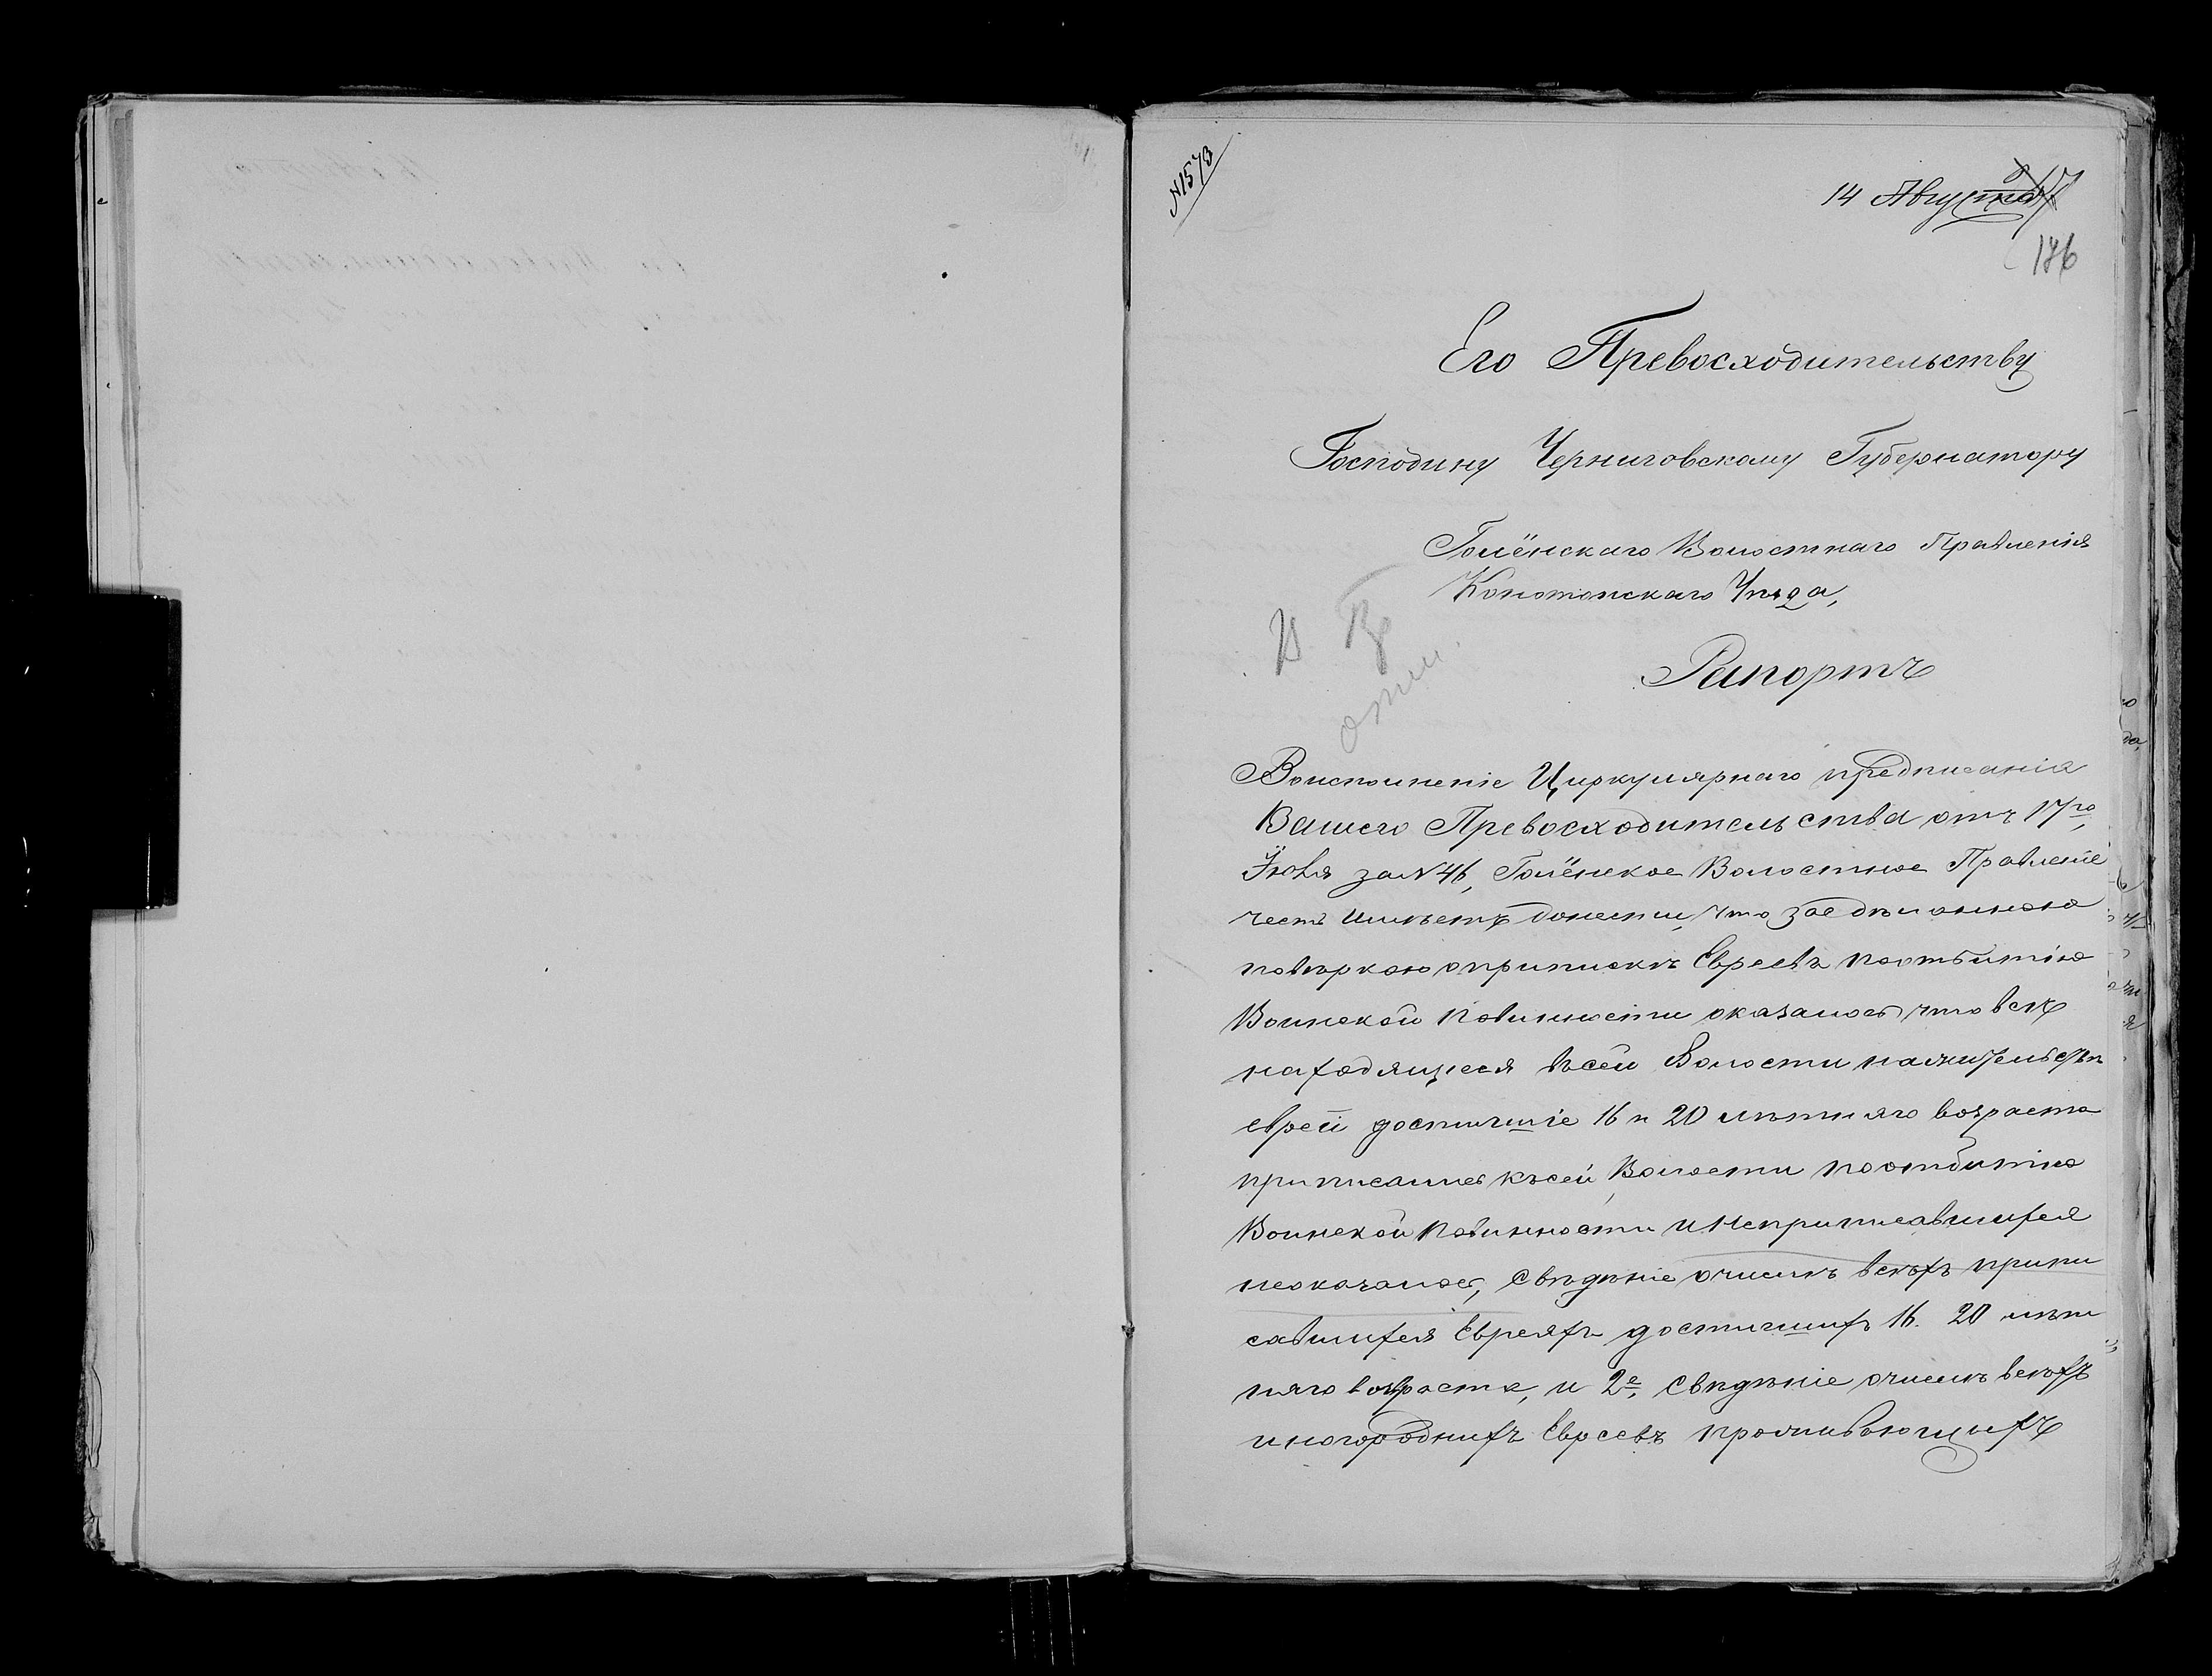 №1573
14 Августа
176
Его Превосходительству
Господину Черниговскому Губернатору
Голёнскаго Волостнаго Правленія
Конотопскаго Уѣзда,
Рапортъ
Воисполненіе Циркулярнаго предписанія
Вашего Превосходительства отъ 17го
Іюля за №46, Голёнское Волостное Правленіе
честь имѣетъ донести, что засдѣланною
повѣркою оприпискѣ Евреевъ поотбытію
Воинской Повинности оказалось что всѣ
находящіеся всей Волости нажительствѣ
евреи достигшіе 16 и 20 лѣтняго возраста
приписались ксей Волости поотбытію
Воинской Повинности и неприписавшихся
неоказалось, Свѣдѣніе очислѣ всѣхъ припи
савшихся Евреяхъ достигшихъ 16. 20 лѣт
няго возраста, и 2е, Свѣдѣніе очислѣ всѣхъ
иногороднихъ Евреевъ проживающихъ